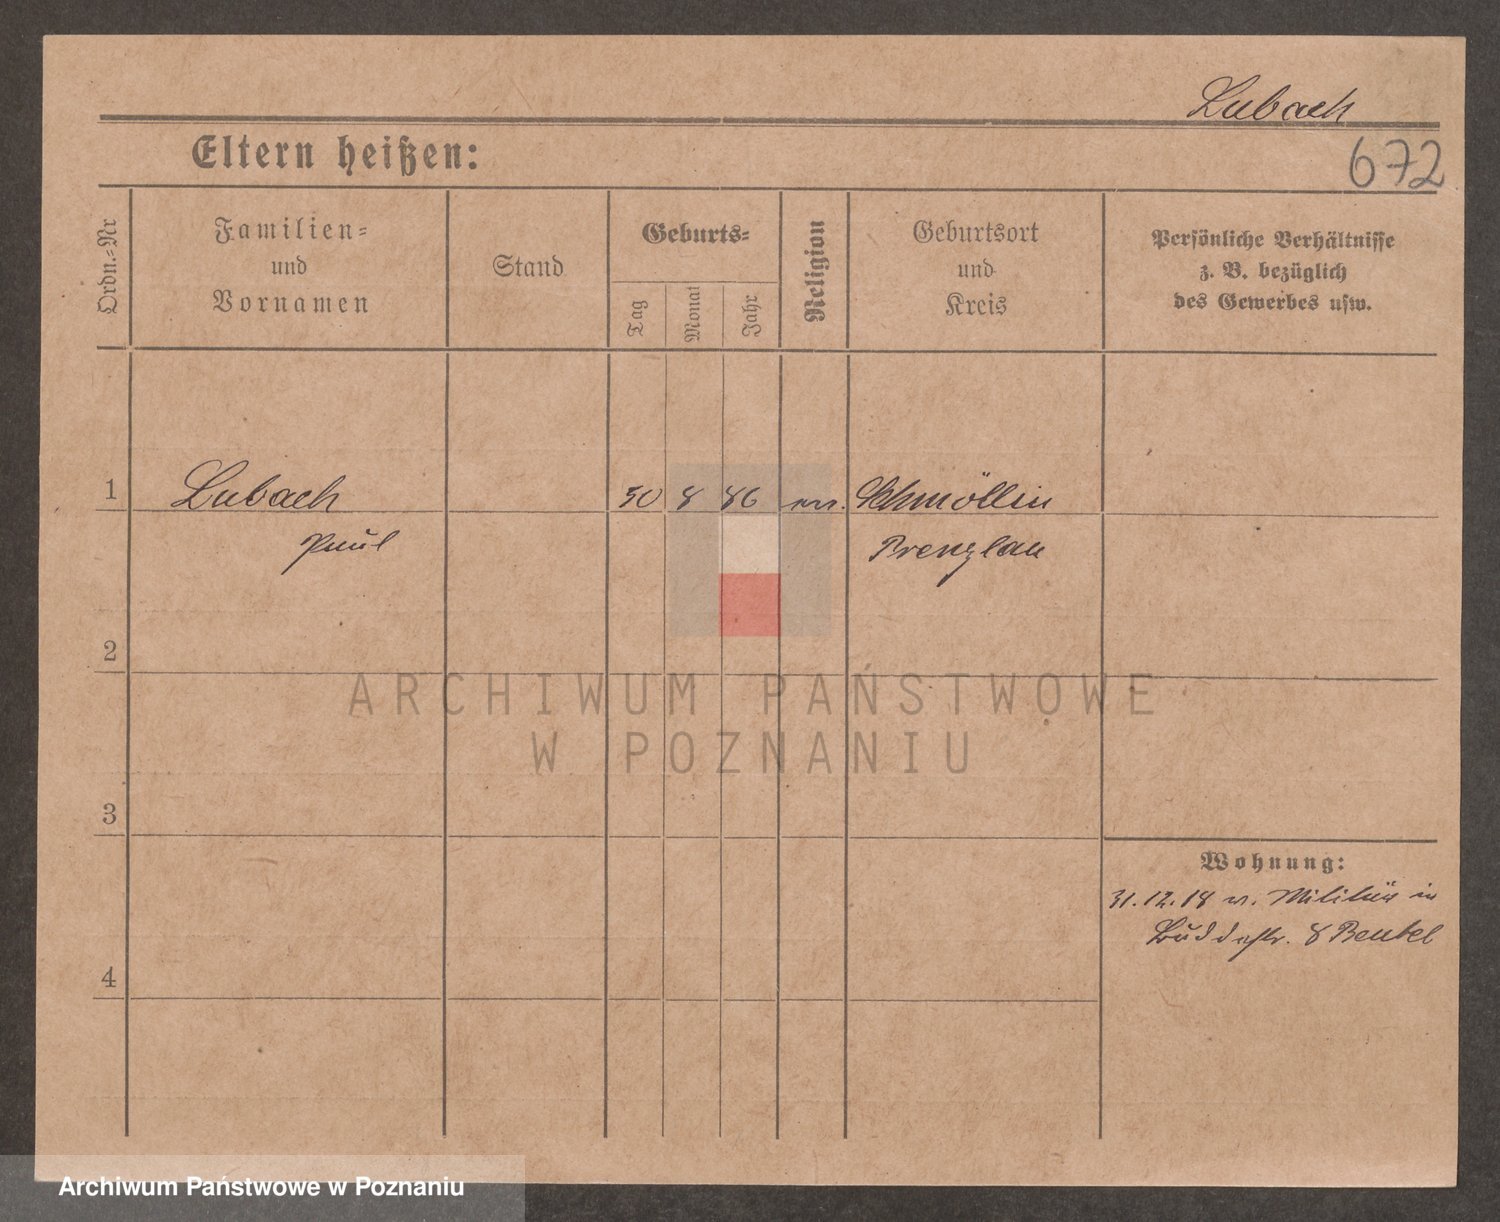 Lubach
Eltern heißen:
672
Ordn.-Nr
Familien-
und
Vornamen
Stand
Geburts-
Tag
Monat
Jahr
Religion
Geburtsort
und
Kreis
Persönliche Verhältnisse
z. B. bezüglich
des Gewerbes usw.
1 Lubach 30 8 86 ev. Schmöllin
Paul Prenzlau
2
ARCHIWUM PAŃSTWOWE
W POZNANIU
3
Wohnung:
31.12.18 v. Militär in
Buddestr. 8 Beutel
4
Archiwum Państwowe w Poznaniu